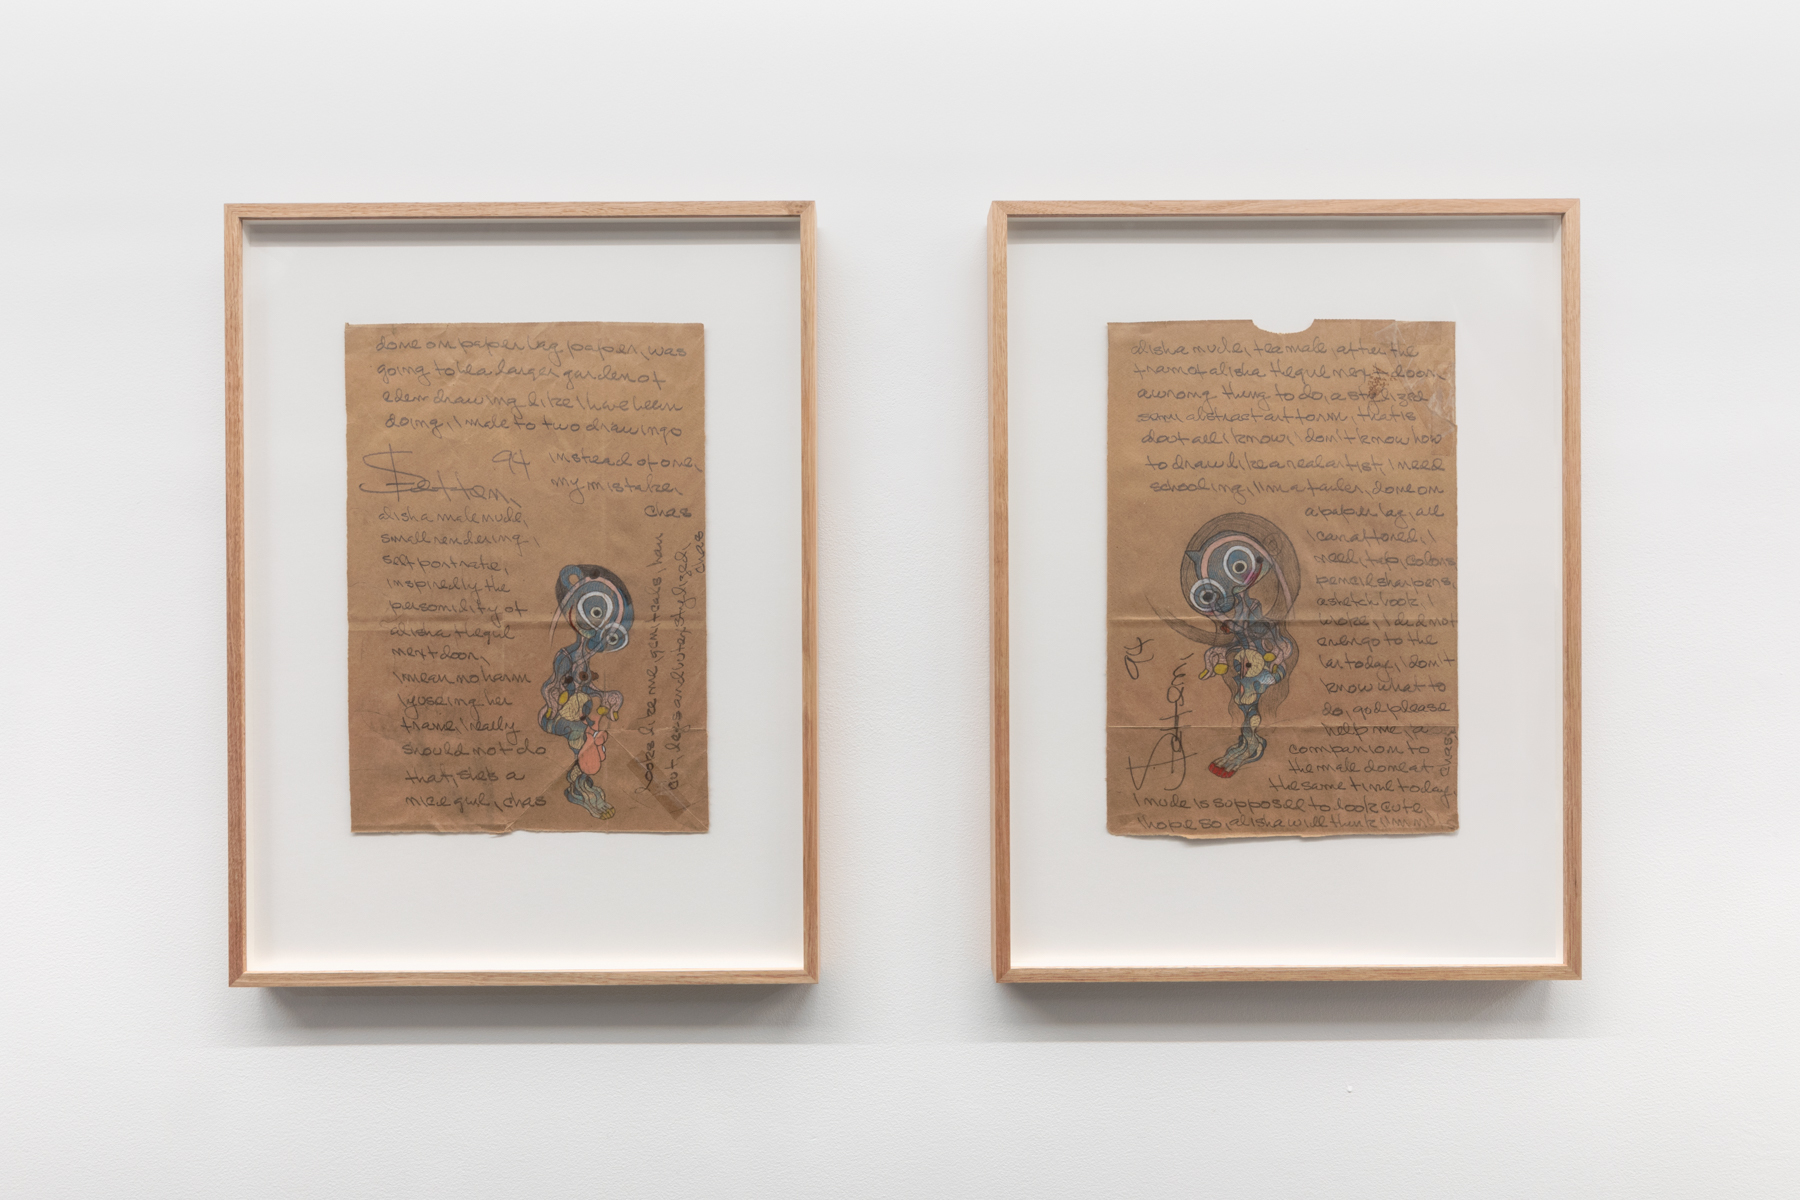 done on paper bag paper, was
going to be a larger garden of
eden drawing like I have been
doing, I made to two drawings
instead of one,
my mistake,
chas
94
alisha male nude,
small rendering,
self portrate,
inspired by the
personility of
alisha the gurl
next door,
I mean no harm
by useing her
frame, I really
should not do
that, shes a
nice gurl, chas
looks like me, geniteals, han
out, legs and butex stylized,
chas
alisha nude, female, after the
fram of alisha the gurl next door,
a wrong thing to do, a stylized
semi abstract art form, that is
about all I know, I don't know how
to draw like a real artist, I need
schooling, I'm a failer, done on
a paper bag, all
I can afford, I
need, top, colors
pencil sharpens,
a sketch book, I
wrote, I did not
even go to the
bar today, I don't
know what to
do, god please
help me, a
companion to
the male done at
the same time today,
chas
94
nude is supposed to look cute,
I hope so, alisha will think I'm